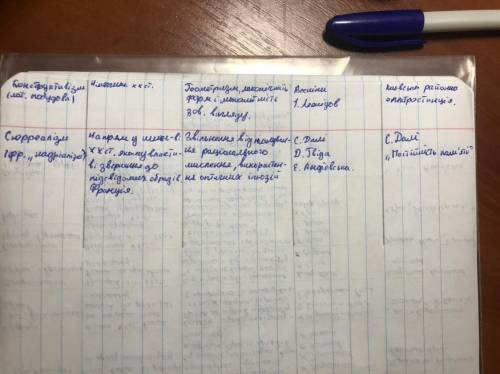 Конструктивізм
(лат. побудова)
Початок ХХ ст.
Геометризм, лаконічність
форм і монолітність
зов. вигляду.
Весніни
І. Леонідов
київська районна
електростанція.
Сюрреалізм
(фр. „надреалізм")
Напрям у мист-ві
ХХ ст. якому власти-
ві звернення до
підсвідомих образів
Франція.
Звільнення від пануван-
ня раціонального
мислення, використан-
ня оптичних ілюзій
С. Далі
Е. Андієвська.
С. Далі
„Постійність пам'яті"